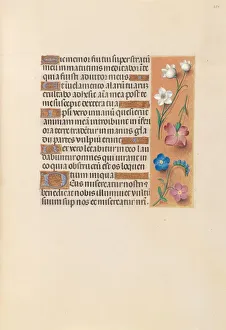 Si memor fui tui super stratu
meum in matutinis meditabor in te
quia fuisti adiutor meus
Et in velamento alarum tuarum
exultabo adhesit anima mea post te
me suscepit dextera tua
Ipsi vero in vanum quesierunt
animam meam introibunt in inferi
ora terre tradentur in manus gla
dii partes vulpium erunt
Rex vero letabitur in deo lau
dabuntur omnes qui iurant in eo
quia obstructum est os loquen
tium iniqua
Deus misereatur nostri
benedicat nobis illuminet vul
tum suum super nos et misereatur nr̄i